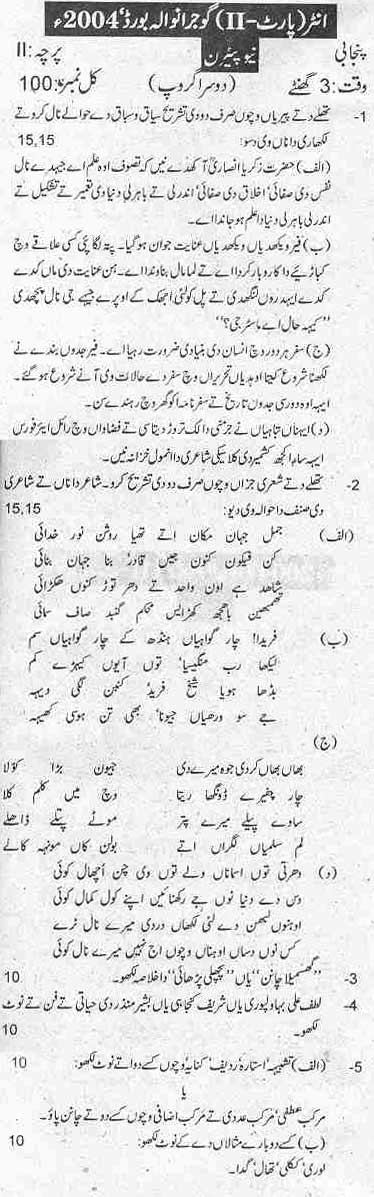 انٹر (پارٹ-II) گوجرانوالہ بورڈ 2004ء
پنجابی نیو پیٹرن پرچہ: II
وقت: 3 گھنٹے (دوسرا گروپ) کل نمبر: 100
1- تھلے دتے پیریاں وچوں صرف دو دی تشریح سیاق و سباق دے حوالے نال کرو تے
لکھاری دا ناں وی دسو: 15,15
(الف) حضرت زکریا انصاریؒ آکھدے نیں کہ تصوف اوہ علم اے جیہدے نال
نفس دی صفائی، اخلاق دی صفائی، اندر لی تے باہر لی دنیا دی تعمیر تے تشکیل تے
اندر لی باہر لی دنیا دا علم ہو جاندا اے۔
(ب) فیر ویکھدیاں ویکھدیاں عنایت جوان ہو گیا۔ پتہ لگا پئی کسی علاقے وچ
کباڑیئے دا کاروبار کردا اے تے لما مال بناوندا اے۔ ہن عنایت دی ماں کدے
کدے ایہدروں لنگھدی تے پل کو لئی اٹک کے اوپرے جیہے جی نال پچھدی
"کیہہ حال اے ماسٹر جی؟"
(ج) سفر ہر دور وچ انسان دی بنیادی ضرورت رہیا اے۔ فیر جدوں بندے نے
لکھنا شروع کیتا اوہدیاں تحریراں وچ سفر دے حالات وی آنے شروع ہو گئے۔
ایہہ اوہ دور سی جدوں تاریخ تے سفر نامہ اکو گھر وچ رہندے سن۔
(د) ایہناں تباہیاں نے جرمنی دا لک تروڑ دیتا سی تے فضاواں وچ رائل ایئر فورس
ایہہ ساہ کشمیر دی کلاسیکی شاعری دا انمول خزانہ نیں۔
2- تھلے دتے شعری جزاں وچوں صرف دو دی تشریح کرو۔ شاعر دا ناں تے شاعری
دی صنف دا حوالہ وی دیو: 15,15
(الف) جمل جہان مکان اتے تھیا روشن نور خدائی
کن فیکون کنوں جیں قادر، بنا جہان بنائی
شاھد ہے اون واحد تے دھر توڑ کنوں
باجھ محکم گنبد صاف سمائی
(ب) فریدا! چار گوایاں ہندھ کے چار گوایاں سم
لیکھا رب منگیسیا، توں آیوں کیہڑے کم
بڈھا ہویا شیخ فرید، کنبن لگی دیہہ
جے سو ورھیاں جیونا، بھی تن ہوسی کھیہہ
(ج)
بھاں بھاں کردی جوہ میرے دی جیون بڑا کولا
چار چفیرے ڈونگھا ریتا وچ میں کلم کلا
ساوے پیلے میرے پتر موٹے پتلے ڈاھلے
لم سلمیاں لگراں اتے بولن کاں مونہہ کالے
(د) دھرتی توں اسماناں ولے توں وی چن اچھال کوئی
دس دے دنیا نوں جے رکھنا ایں اپنے کول کمال کوئی
اوہنوں لبھن دے لئی لکھاں دردی میرے نال ٹرے
کس نوں دساں اوہناں وچوں اج نہیں میرے نال کوئی
3- "گھسمیلا چانن" یاں "پچھلی پڑھائی" دا خلاصہ لکھو۔ 10
4- لطف علی بہاولپوری یاں شریف کنجاہی یاں بشیر منذر دی حیاتی تے فن تے نوٹ
لکھو۔ 10
5- (الف) تشبیہ، استعارہ، ردیف، کنایہ وچوں کسے دو اتے نوٹ لکھو: 10
یا
مرکب عطفی، مرکب عددی تے مرکب اضافی وچوں کسے دو تے چانن پاؤ۔
(ب) کسے دو بارے مثالاں دے کے نوٹ لکھو: 10
لوری، ککلی، تھال، گدا۔